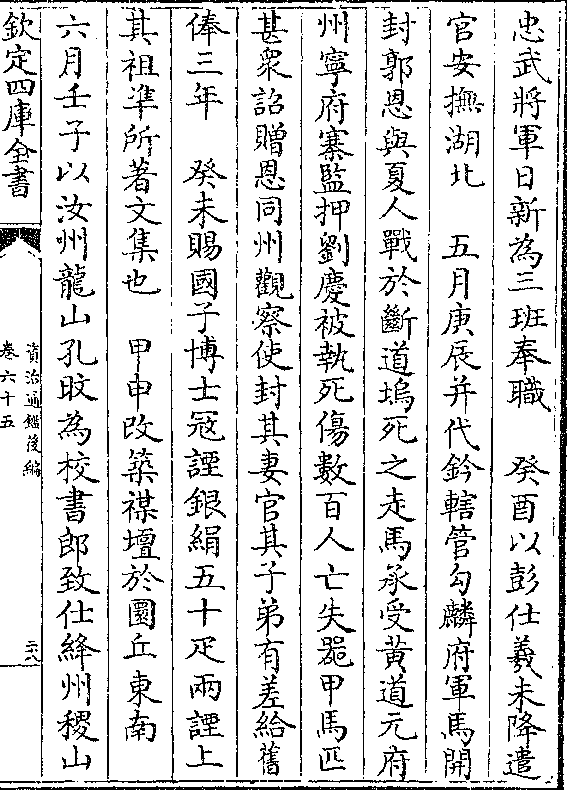 忠武將軍日新為三班奉職　癸酉以彭仕羲未降遣
官安撫湖北　五月庚辰并代鈐轄管勾麟府軍馬開
封郭恩與夏人戰於斷道塢死之走馬承受黃道元府
州寧府寨監押劉慶被執死傷數百人亡失器甲馬匹
甚衆詔贈恩同州觀察使封其妻官其子弟有差給舊
俸三年　癸未賜國子博士冦諲銀絹五十疋兩諲上
其祖凖所著文集也　甲申改築禖壇於圜丘東南
六月壬子以汝州龍山孔旼為校書郎致仕絳州稷山
欽定四庫全書
資治通鑑後編
卷六十五
二十八